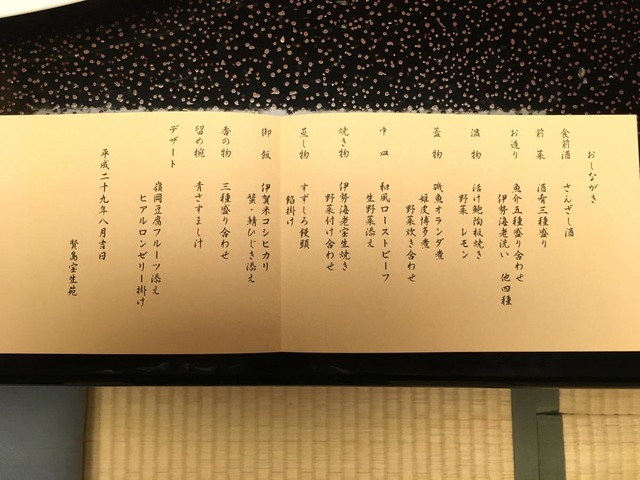 おしながき
食前酒 さんざし酒
前菜 酒肴三種盛り
お造り 魚介五種盛り合わせ
伊勢海老洗い 他四種
温物 活け鮑陶板焼き
野菜 レモン
蓋物 磯魚オランダ煮
姫皮博多煮
野菜炊き合わせ
中皿 和風ローストビーフ
生野菜添え
焼き物 伊勢海老宝生焼き
野菜付け合わせ
蒸し物 すずしろ饅頭
餡掛け
御飯 伊賀米コシヒカリ
蟹・鯖ひじき添え
香の物 三種盛り合わせ
留め椀 青さすまし汁
デザート 嶺岡豆腐フルーツ添え
ヒアルロンゼリー掛け
平成二十九年八月吉日
賢島宝生苑